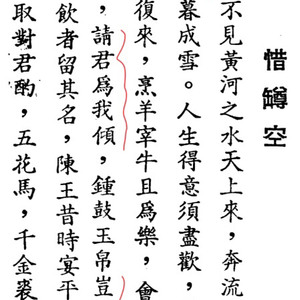 惜罇空
不見黃河之水天上來，奔流
暮成雪。人生得意須盡歡，
復來，烹羊宰牛且爲樂，會
，請君爲我傾，鍾鼓玉帛豈
飲者留其名，陳王昔時宴平
取對君酌，五花馬，千金裘